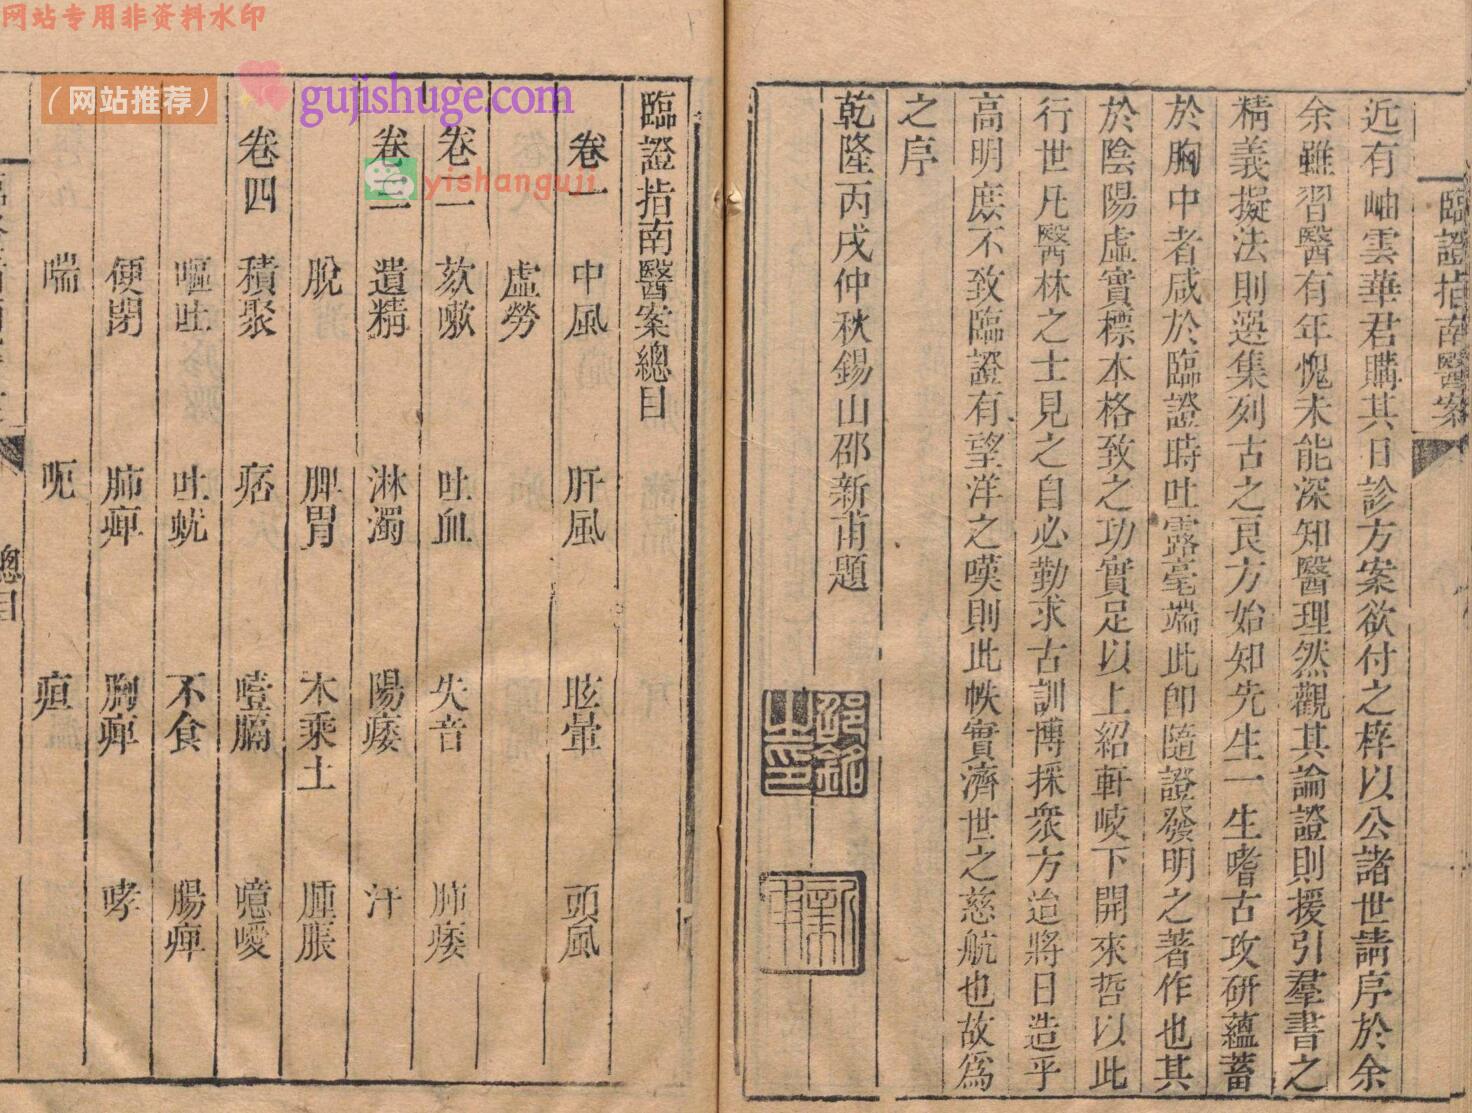 网站专用非资料水印
（网站推荐）
gujishuge.com
yishanguji
臨證指南醫案
近有岫雲華君購其日診方案欲付之梓以公諸世請序於余
余雖習醫有年愧未能深知醫理然觀其論證則援引羣書之
精義擬法則選集列古之良方始知先生一生嗜古攻研蘊蓄
於胸中者咸於臨證時吐露毫端此卽隨證發明之著作也其
於陰陽虛實標本格致之功實足以上紹軒岐下開來哲以此
行世凡醫林之士見之自必勤求古訓博採衆方造將日造乎
高明庶不致臨證有望洋之嘆則此帙實濟世之慈航也故爲
之序
乾隆丙戌仲秋錫山邵新甫題
邵銘之印
新甫
臨證指南醫案總目
卷一 中風 肝風 眩暈 頭風
虛勞
卷二 欬嗽 吐血 失音 肺痿
卷三 遺精 淋濁 陽痿 汗
脫 脾胃 木乘土 腫脹
卷四 積聚 痞 噎膈 噫噯
嘔吐 吐蚘 不食 腸痺
便閉 肺痺 胸痺 哮
喘 呃 疸
總目